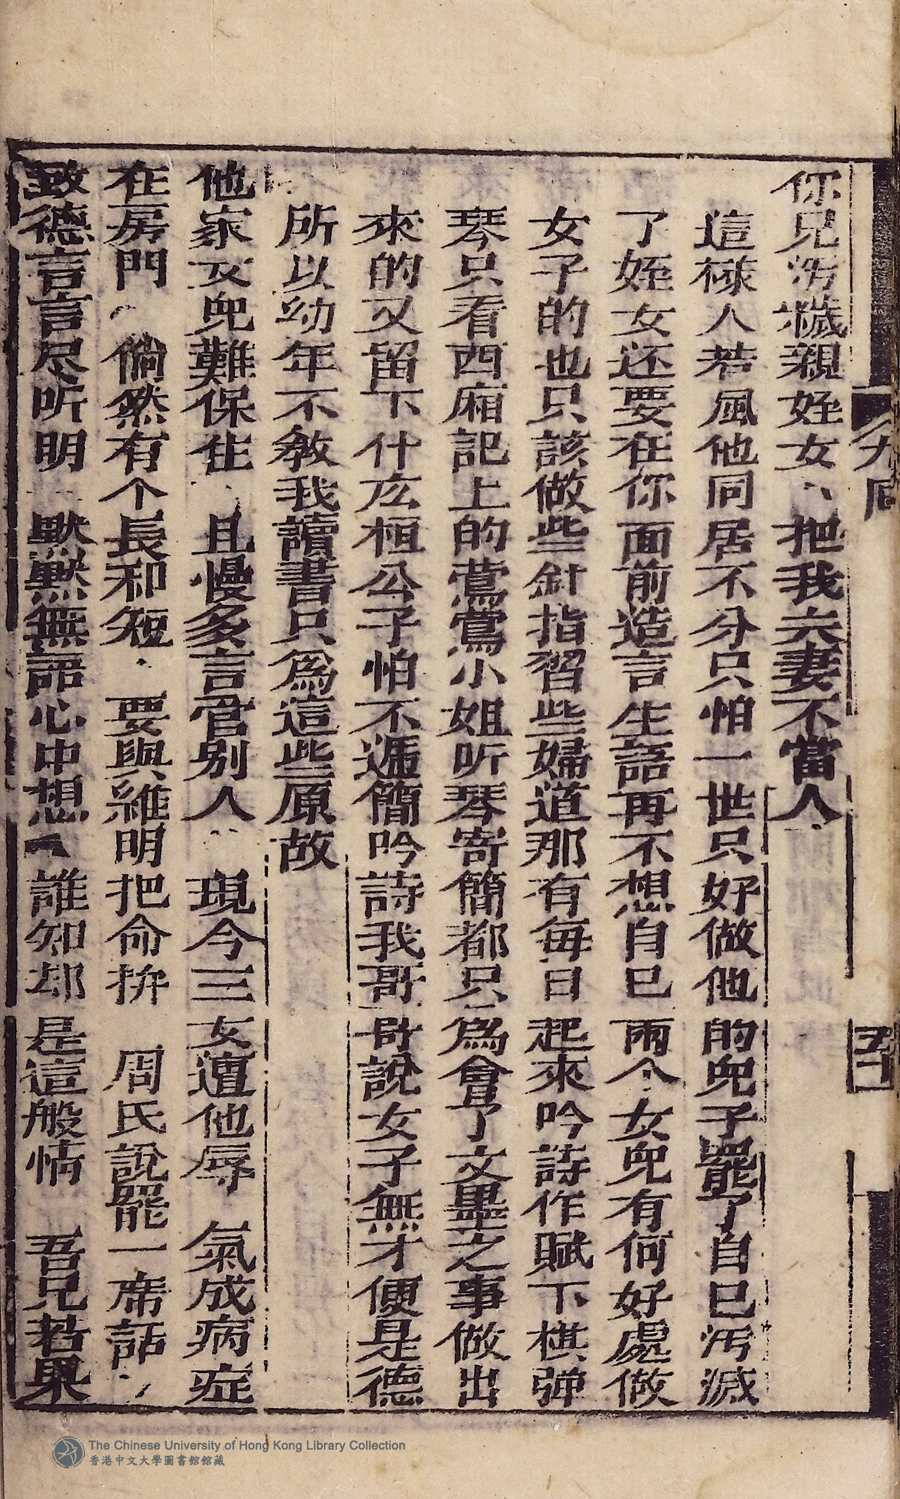 九回
五
你兄污穢親姪女把我夫妻不當人
這樣人若風他同居不分只怕一世只好做他的兒子罷了自已污滅
了姪女还要在你面前造言生語再不想自已兩个女兒有何好處做
女子的也只該做些針指習些婦道那有每日起來吟詩作賦下棋弹
琴只看西廂記上的鶯鶯小姐听琴寄簡都只為會了文墨之事做出
來的又留下什庅桓公子怕不遞簡吟詩我哥哥說女子無才便是德
所以幼年不教我讀書只為這些原故
他家女兒難保住 且慢多言管别人 現今三女遭他辱 氣成病症
在房門 倘然有个長和短 要與維明把命拚 周氏說罷一席話
致德言言尽听明 默默無語心中想 誰知却是這般情 吾兄若果
The Chinese University of Hong Kong Library Collection
香港中文大學圖書館館藏